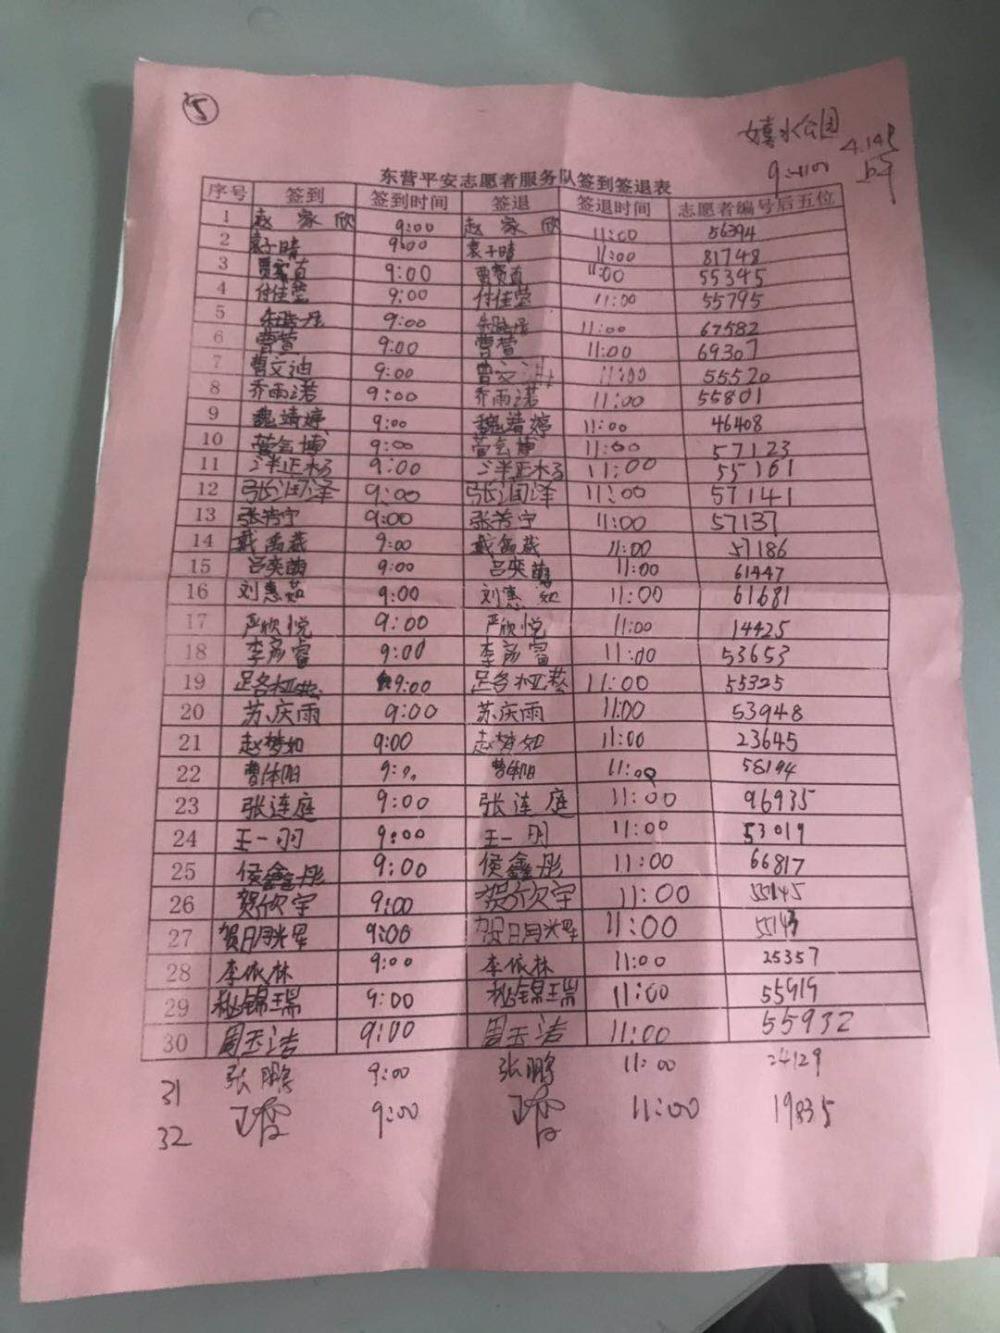 5
嬉水公园
4.14日
9:00-11:00
东营平安志愿者服务队签到签退表
序号 签到 签到时间 签退 签退时间 志愿者编号后五位
1 赵家欣 9:00 赵家欣 11:00 56394
2 袁子晴 9:00 袁子晴 11:00 81748
3 9:00 11:00 55345
4 付佳莹 9:00 付佳莹 11:00 55795
5 9:00 11:00 67582
6 曹萱 9:00 曹萱 11:00 69307
7 曹文迪 9:00 曹文迪 11:00 55520
8 乔雨诺 9:00 乔雨诺 11:00 55801
9 魏靖婷 9:00 魏靖婷 11:00 46408
10 9:00 11:00 57123
11 9:00 11:00 55161
12 张润泽 9:00 张润泽 11:00 57141
13 张芳宁 9:00 张芳宁 11:00 57137
14 9:00 11:00 57186
15 吕奕萌 9:00 吕奕萌 11:00 61447
16 刘惠茹 9:00 刘惠如 11:00 61681
17 严欣悦 9:00 严欣悦 11:00 14425
18 李彦睿 9:00 李彦睿 11:00 53653
19 9:00 11:00 55325
20 苏庆雨 9:00 苏庆雨 11:00 53948
21 赵梦如 9:00 赵梦如 11:00 23645
22 9:00 11:00 58194
23 张连庭 9:00 张连庭 11:00 96935
24 王一羽 9:00 王一羽 11:00 53019
25 侯鑫彤 9:00 侯鑫彤 11:00 66817
26 贺欣宇 9:00 贺欣宇 11:00 55145
27 9:00 11:00 55143
28 李依林 9:00 李依林 11:00 25357
29 9:00 11:00 55919
30 周玉洁 9:00 周玉洁 11:00 55932
31 张鹏 9:00 张鹏 11:00 24129
32 9:00 11:00 19835